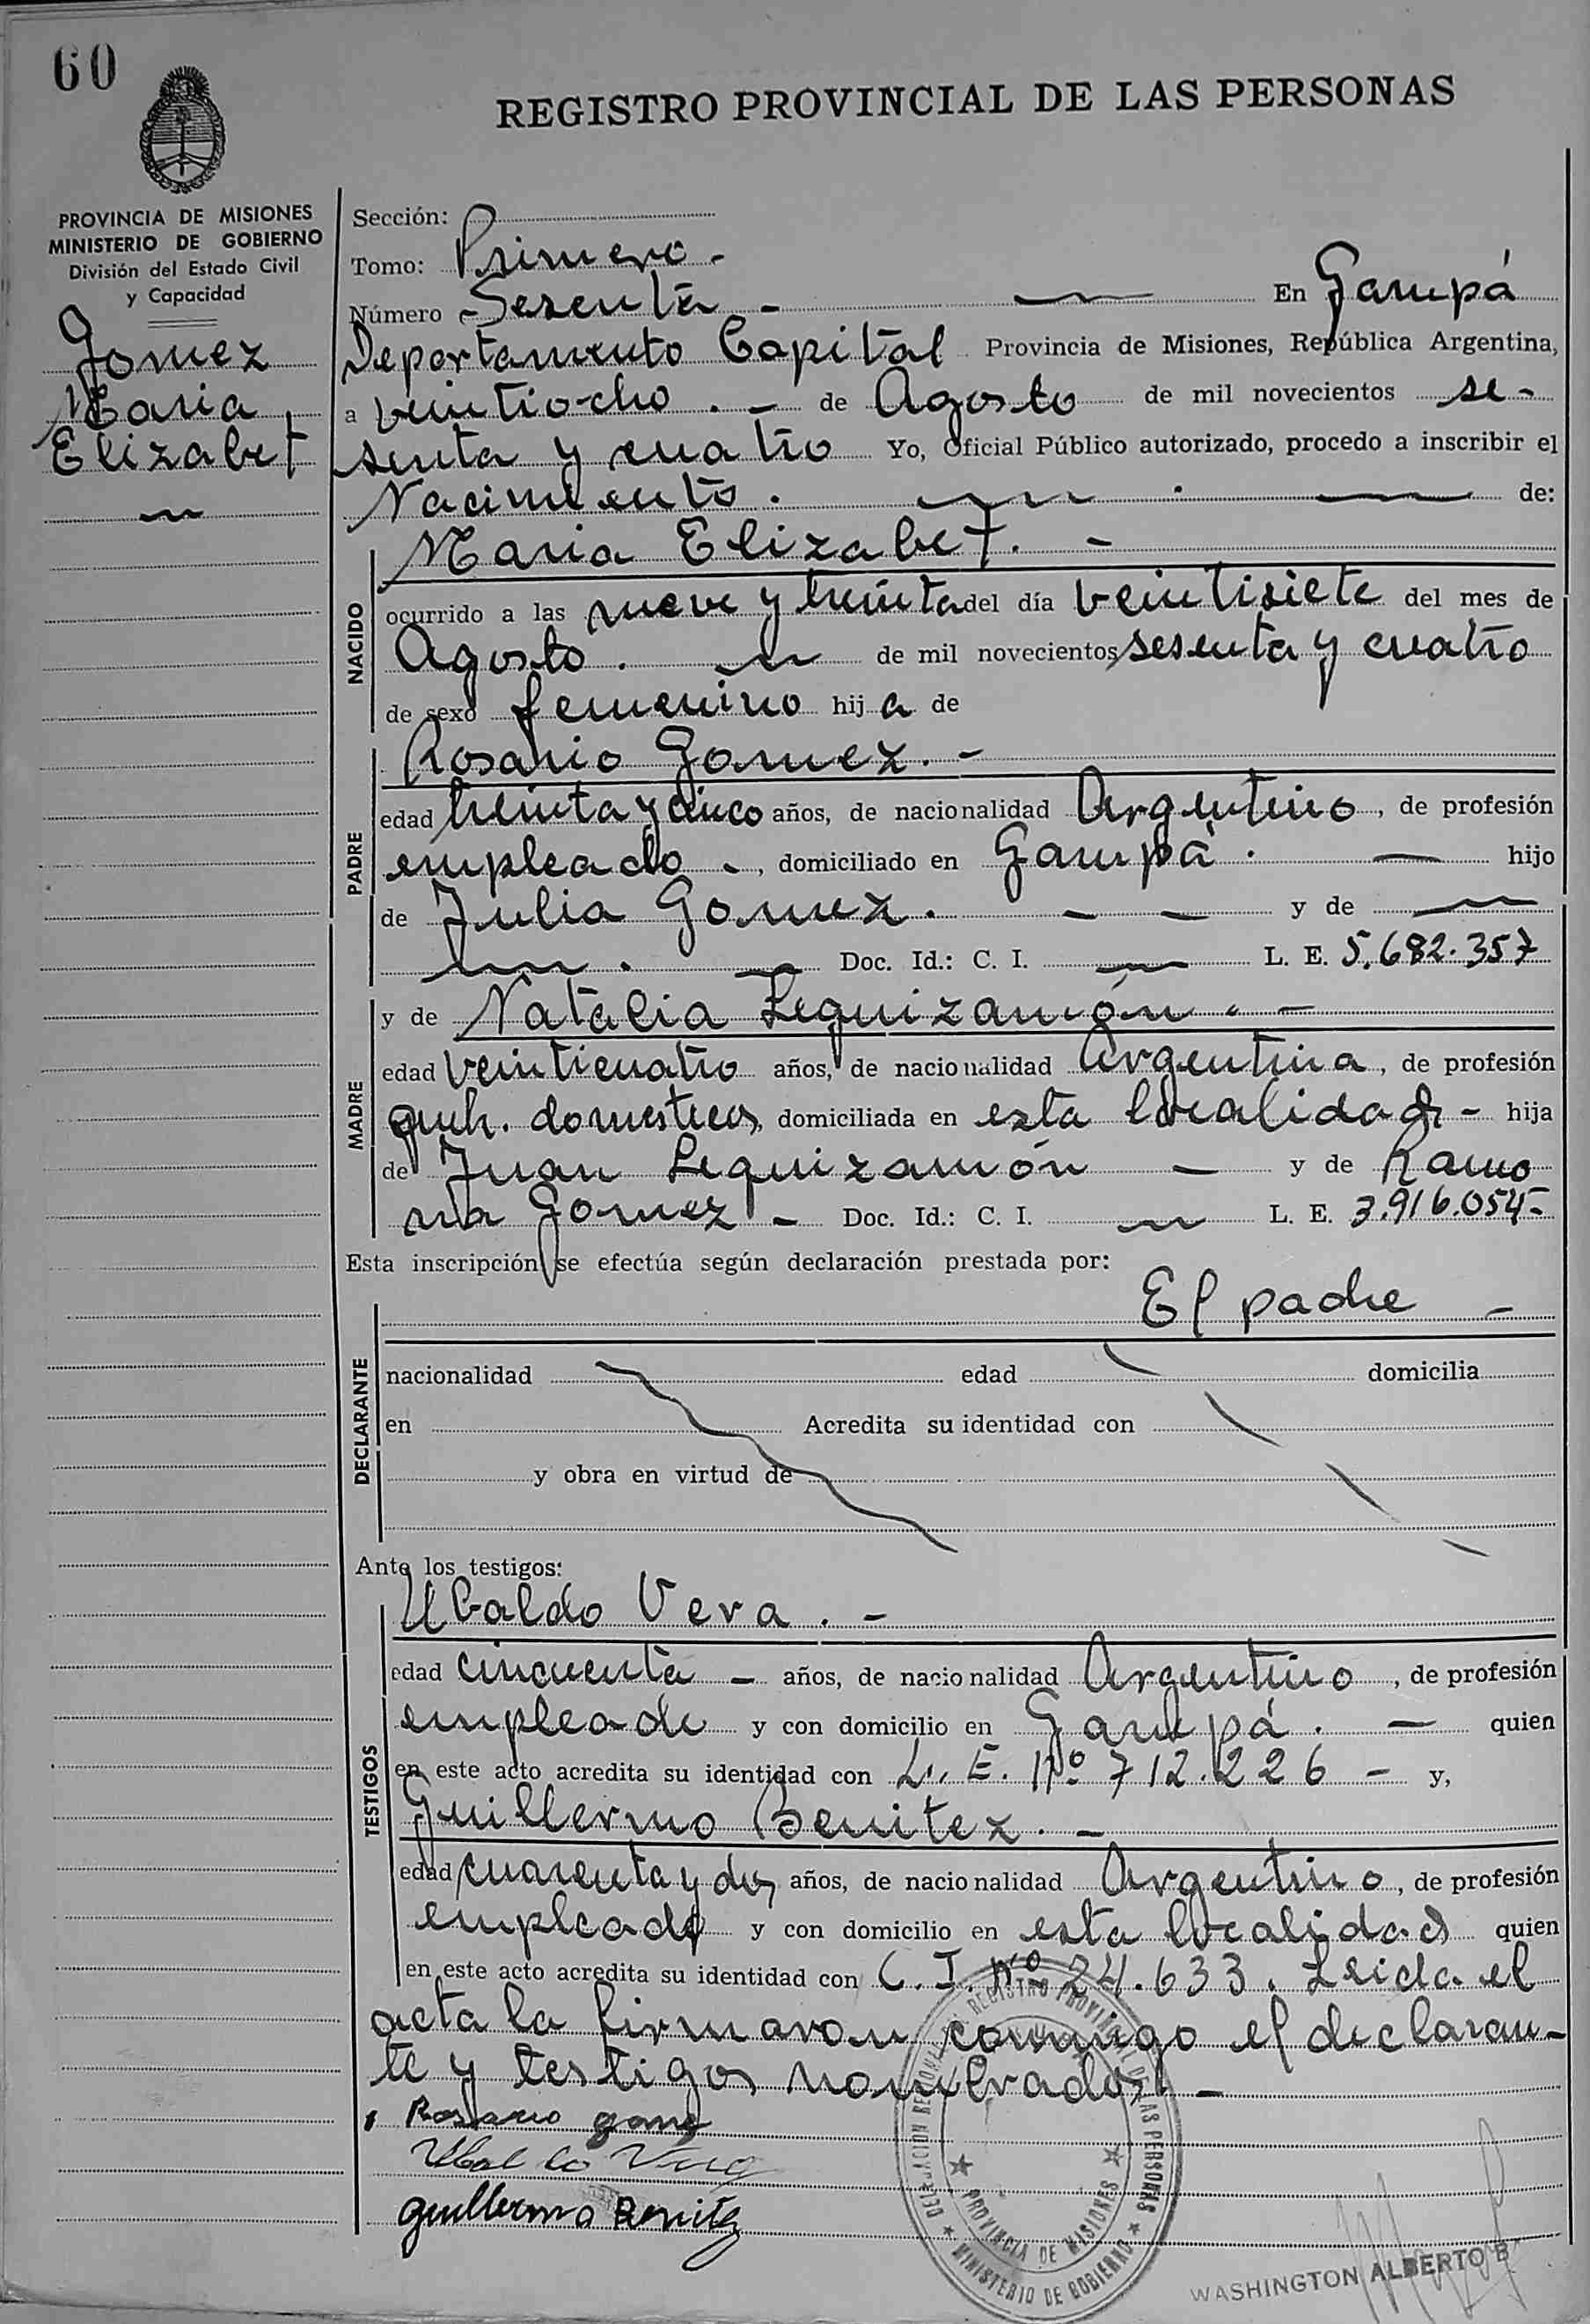 60
REGISTRO PROVINCIAL DE LAS PERSONAS
PROVINCIA DE MISIONES
MINISTERIO DE GOBIERNO
División del Estado Civil
y Capacidad
Gomez
Maria
Elizabet
Sección:
Tomo: Primero.-
Número - Sesenta - En Garupá
Departamento Capital Provincia de Misiones, República Argentina,
a veintiocho . - de Agosto de mil novecientos se-
senta y cuatro Yo, Oficial Público autorizado, procedo a inscribir el
Nacimiento. de:
NACIDO
Maria Elizabet. -
ocurrido a las nueve y treinta del día veintisiete del mes de
Agosto. de mil novecientos sesenta y cuatro
de sexo femenino hij a de
PADRE
Rosario Gomez. -
edad treinta y cinco años, de nacionalidad Argentino, de profesión
empleado -, domiciliado en Garupá. - hijo
de Julia Gomez. - - y de
Doc. Id.: C. I. L. E. 5.682.357
MADRE
y de Natalia Leguizamón. -
edad veinticuatro años, de nacionalidad Argentina, de profesión
queh. domesticos, domiciliada en esta localidad - hija
de Juan Leguizamón - y de Ramo
na Gomez - Doc. Id.: C. I. L. E. 3.916.054-
Esta inscripción se efectúa según declaración prestada por:
El padre -
DECLARANTE
nacionalidad edad domicilia
en Acredita su identidad con
y obra en virtud de
Ante los testigos:
TESTIGOS
Ubaldo Vera. -
edad cincuenta - años, de nacionalidad Argentino, de profesión
empleado y con domicilio en Garupá. - quien
en este acto acredita su identidad con L. E. Nº 712.226 - y,
Guillermo Benitez. -
edad cuarenta y dos años, de nacionalidad Argentino, de profesión
empleado y con domicilio en esta localidad quien
en este acto acredita su identidad con C. I. Nº 24.633. Leida el
acta la firmaron conmigo el declaran-
te y testigos nombrados. -
Rosario Gomez
Ubaldo Vera
Guillermo Benitez
REGISTRO PROVINCIAL DE LAS PERSONAS
PROVINCIA DE MISIONES
MINISTERIO DE GOBIERNO
WASHINGTON ALBERTO B